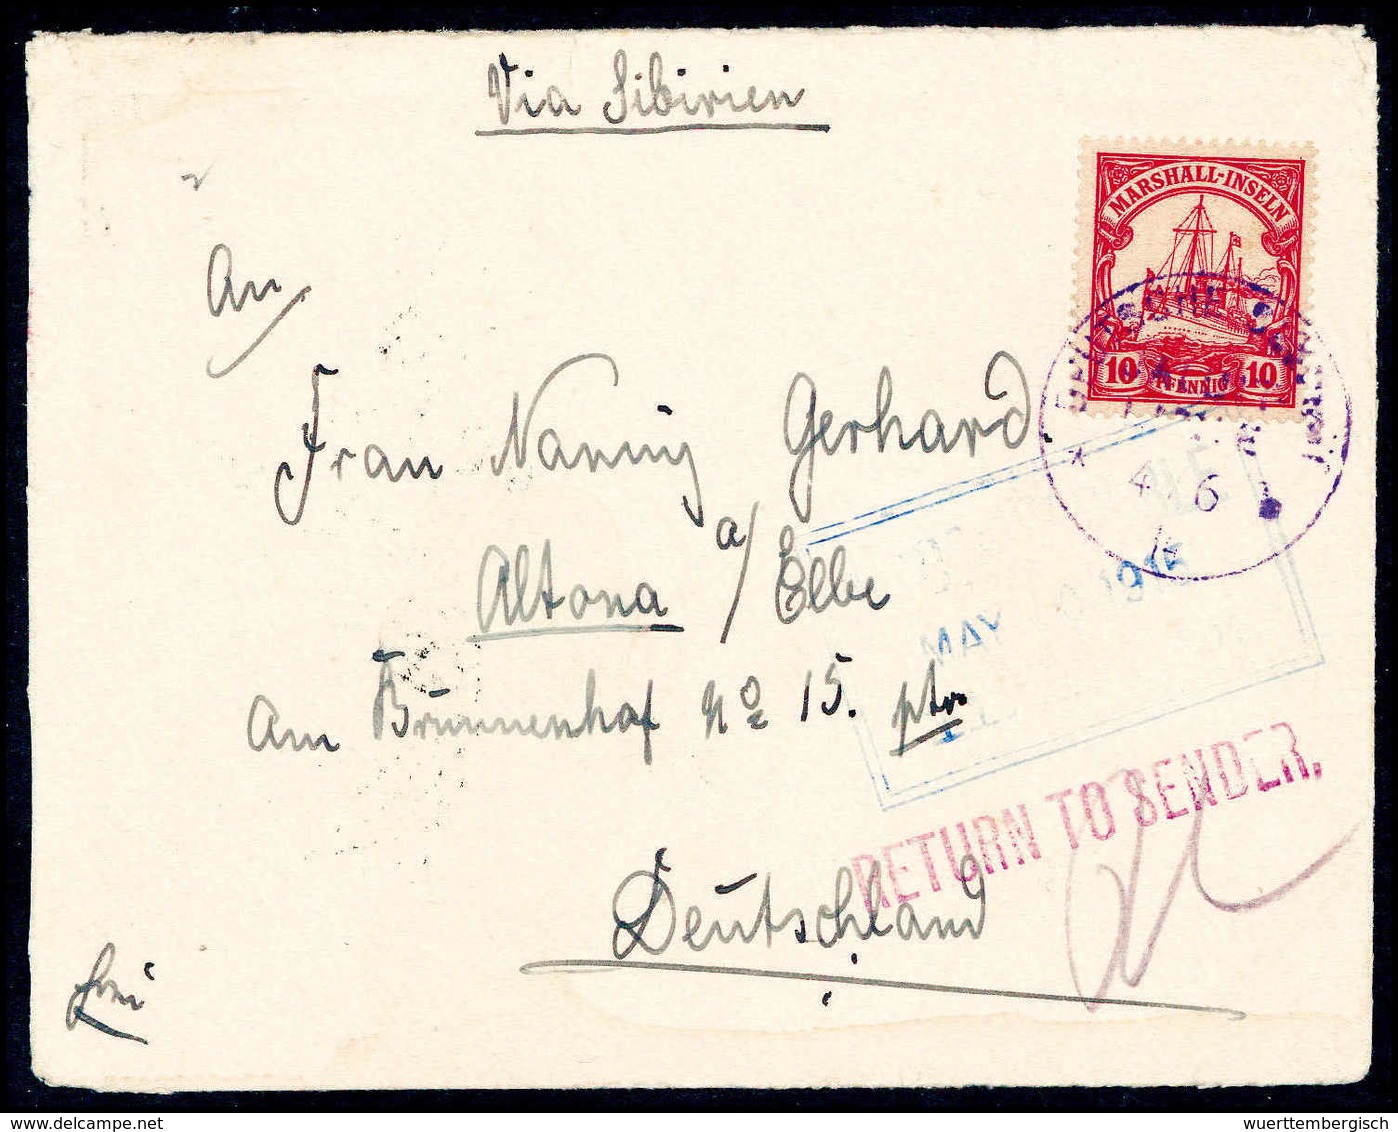 Via Sibirien
MARSHALL-INSELN
10 PFENNIG 10
DEUTSCHE SEEPOST
4 6
An
Frau Nanny Gerhard
Altona a/Elbe
MAY 1915
Am Brunnenhof No 15. ptr
RETURN TO SENDER.
Deutschland
frei
www.delcampe.net
wuerttembergisch